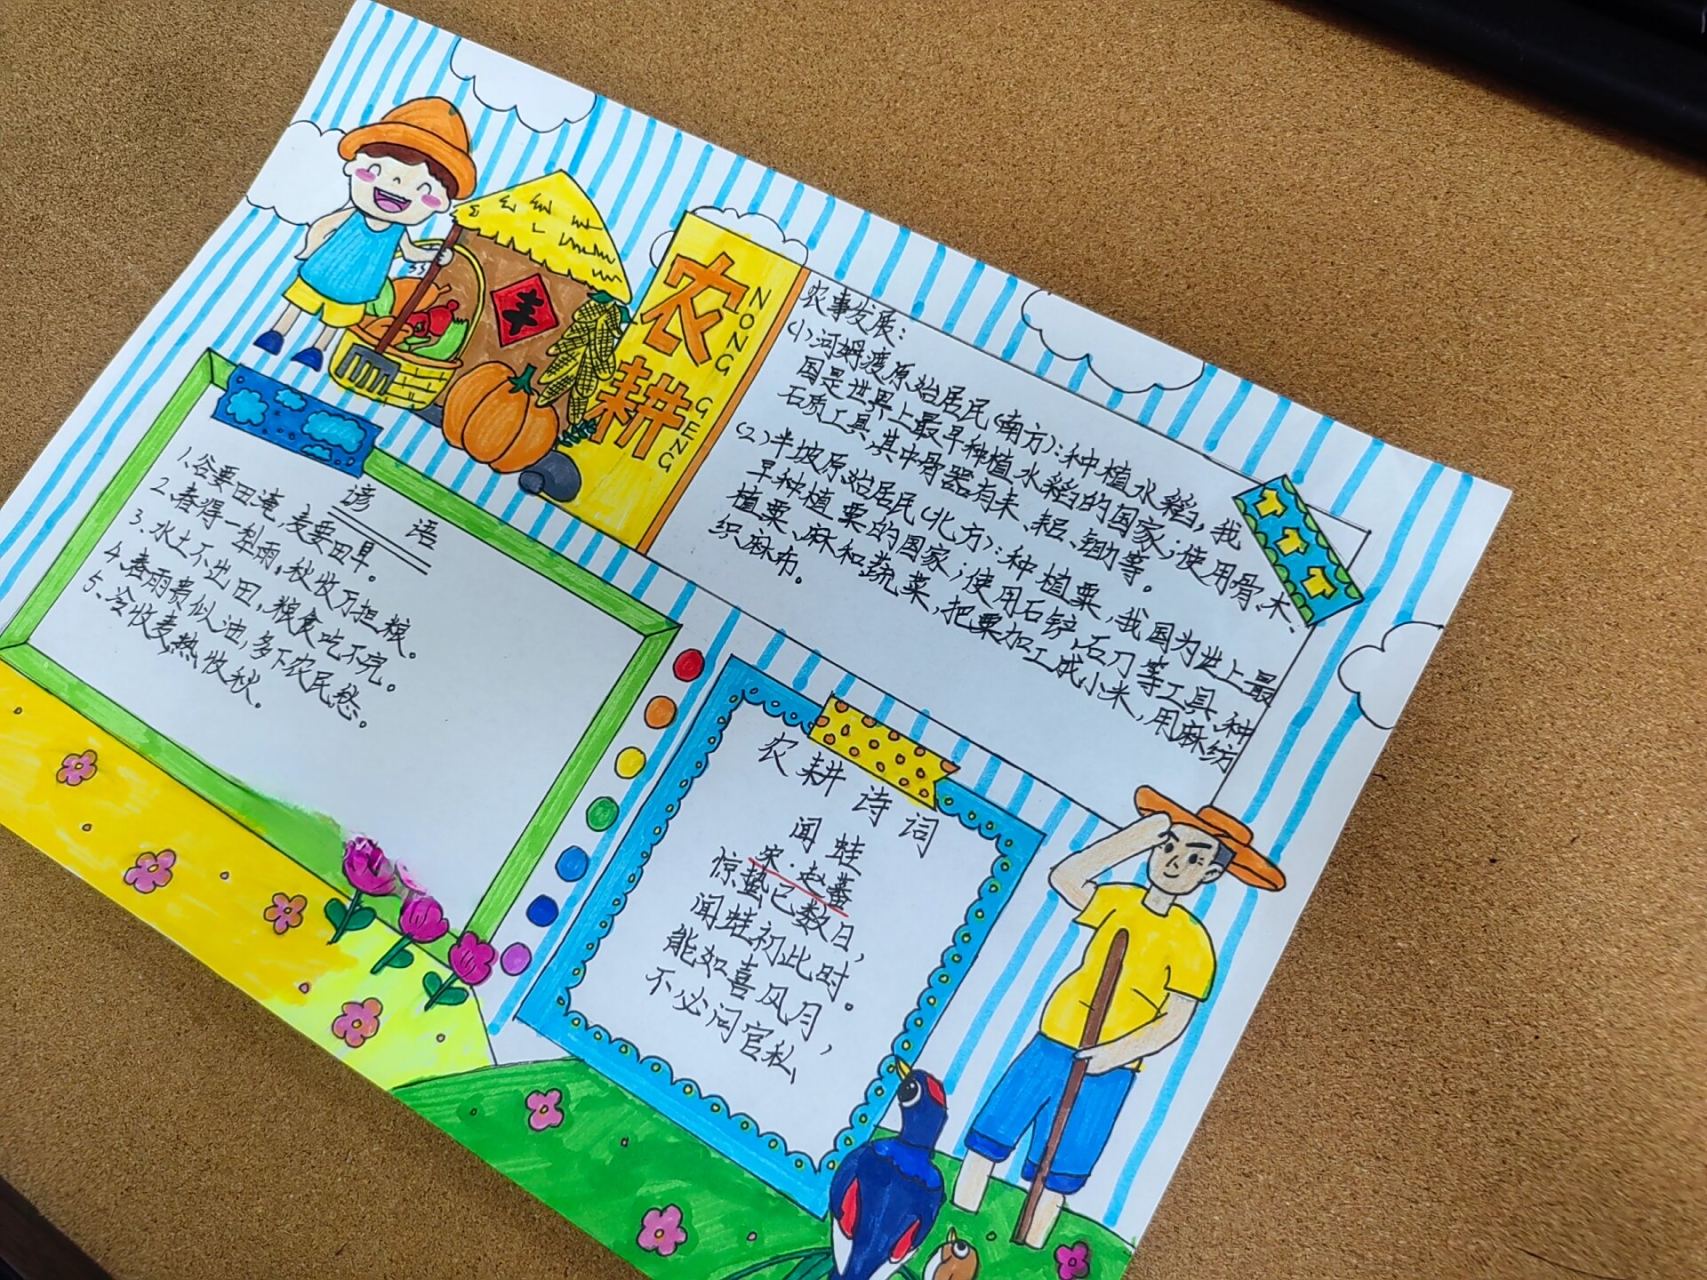 农耕
NONG GENG
丰
农事发展：
(1)河姆渡原始居民(南方)：种植水稻，我
国是世界上最早种植水稻的国家；使用骨、木、
石质工具,其中骨器有耒、耜、锄等。
(2)半坡原始居民(北方)：种植粟，我国为世上最
早种植粟的国家；使用石铲,石刀等工具、种
植粟、麻和蔬菜,把粟加工成小米，用麻纺
织麻布。
谚语
1.谷要田淹,麦要田旱。
2.春得一犁雨,秋收万担粮。
3.水土不出田，粮食吃不完。
4.春雨贵似油,多下农民愁。
5.冷收麦热收秋。
农耕诗词
闻蛙
宋·赵蕃
惊蛰已数日，
闻蛙初此时。
能如喜风月，
不必问官私,